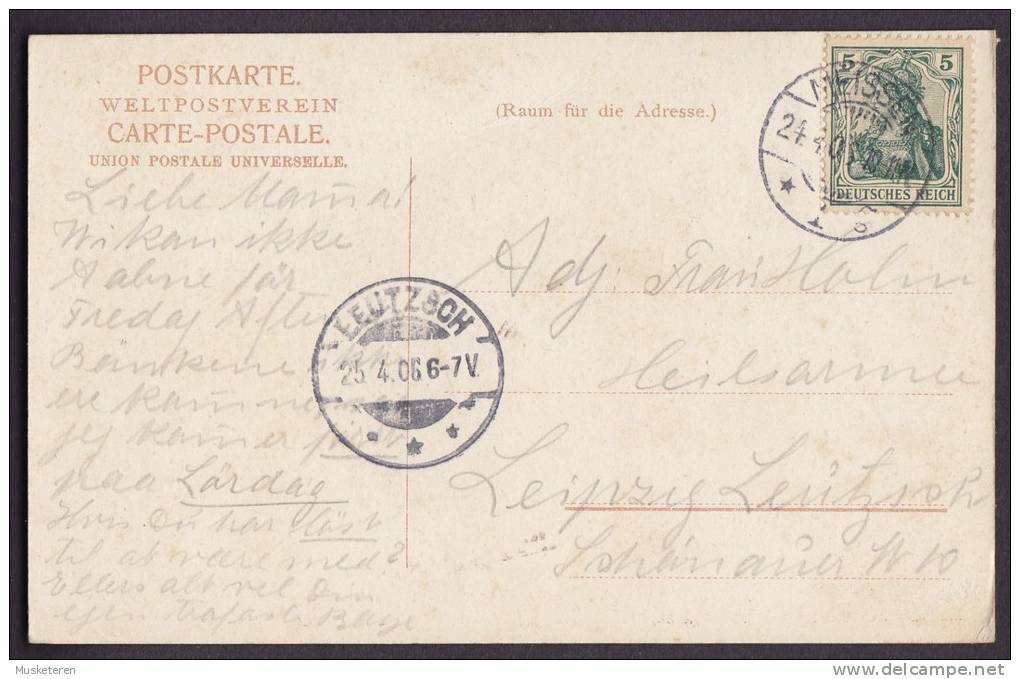 POSTKARTE.
WELTPOSTVEREIN
CARTE-POSTALE.
UNION POSTALE UNIVERSELLE.
(Raum für die Adresse.)
5 5
DEUTSCHES REICH
MEISSEN
24.4.0
1
Liebe Mama!
Wi kan ikke
Aabne før
Fredag Aften
Bänkene ikke
ere
jeg kommer først
paa Lördag
Hvis Du har löst
til at være med?
Ellers alt vel Din
egen trofaste
LEUTZSCH
25.4.06 6-7V.
Adj. Frau Holm
Heilsarmee
Leipzig Leutzsch
Schönauer W 10
Musketeren
www.delcampe.net